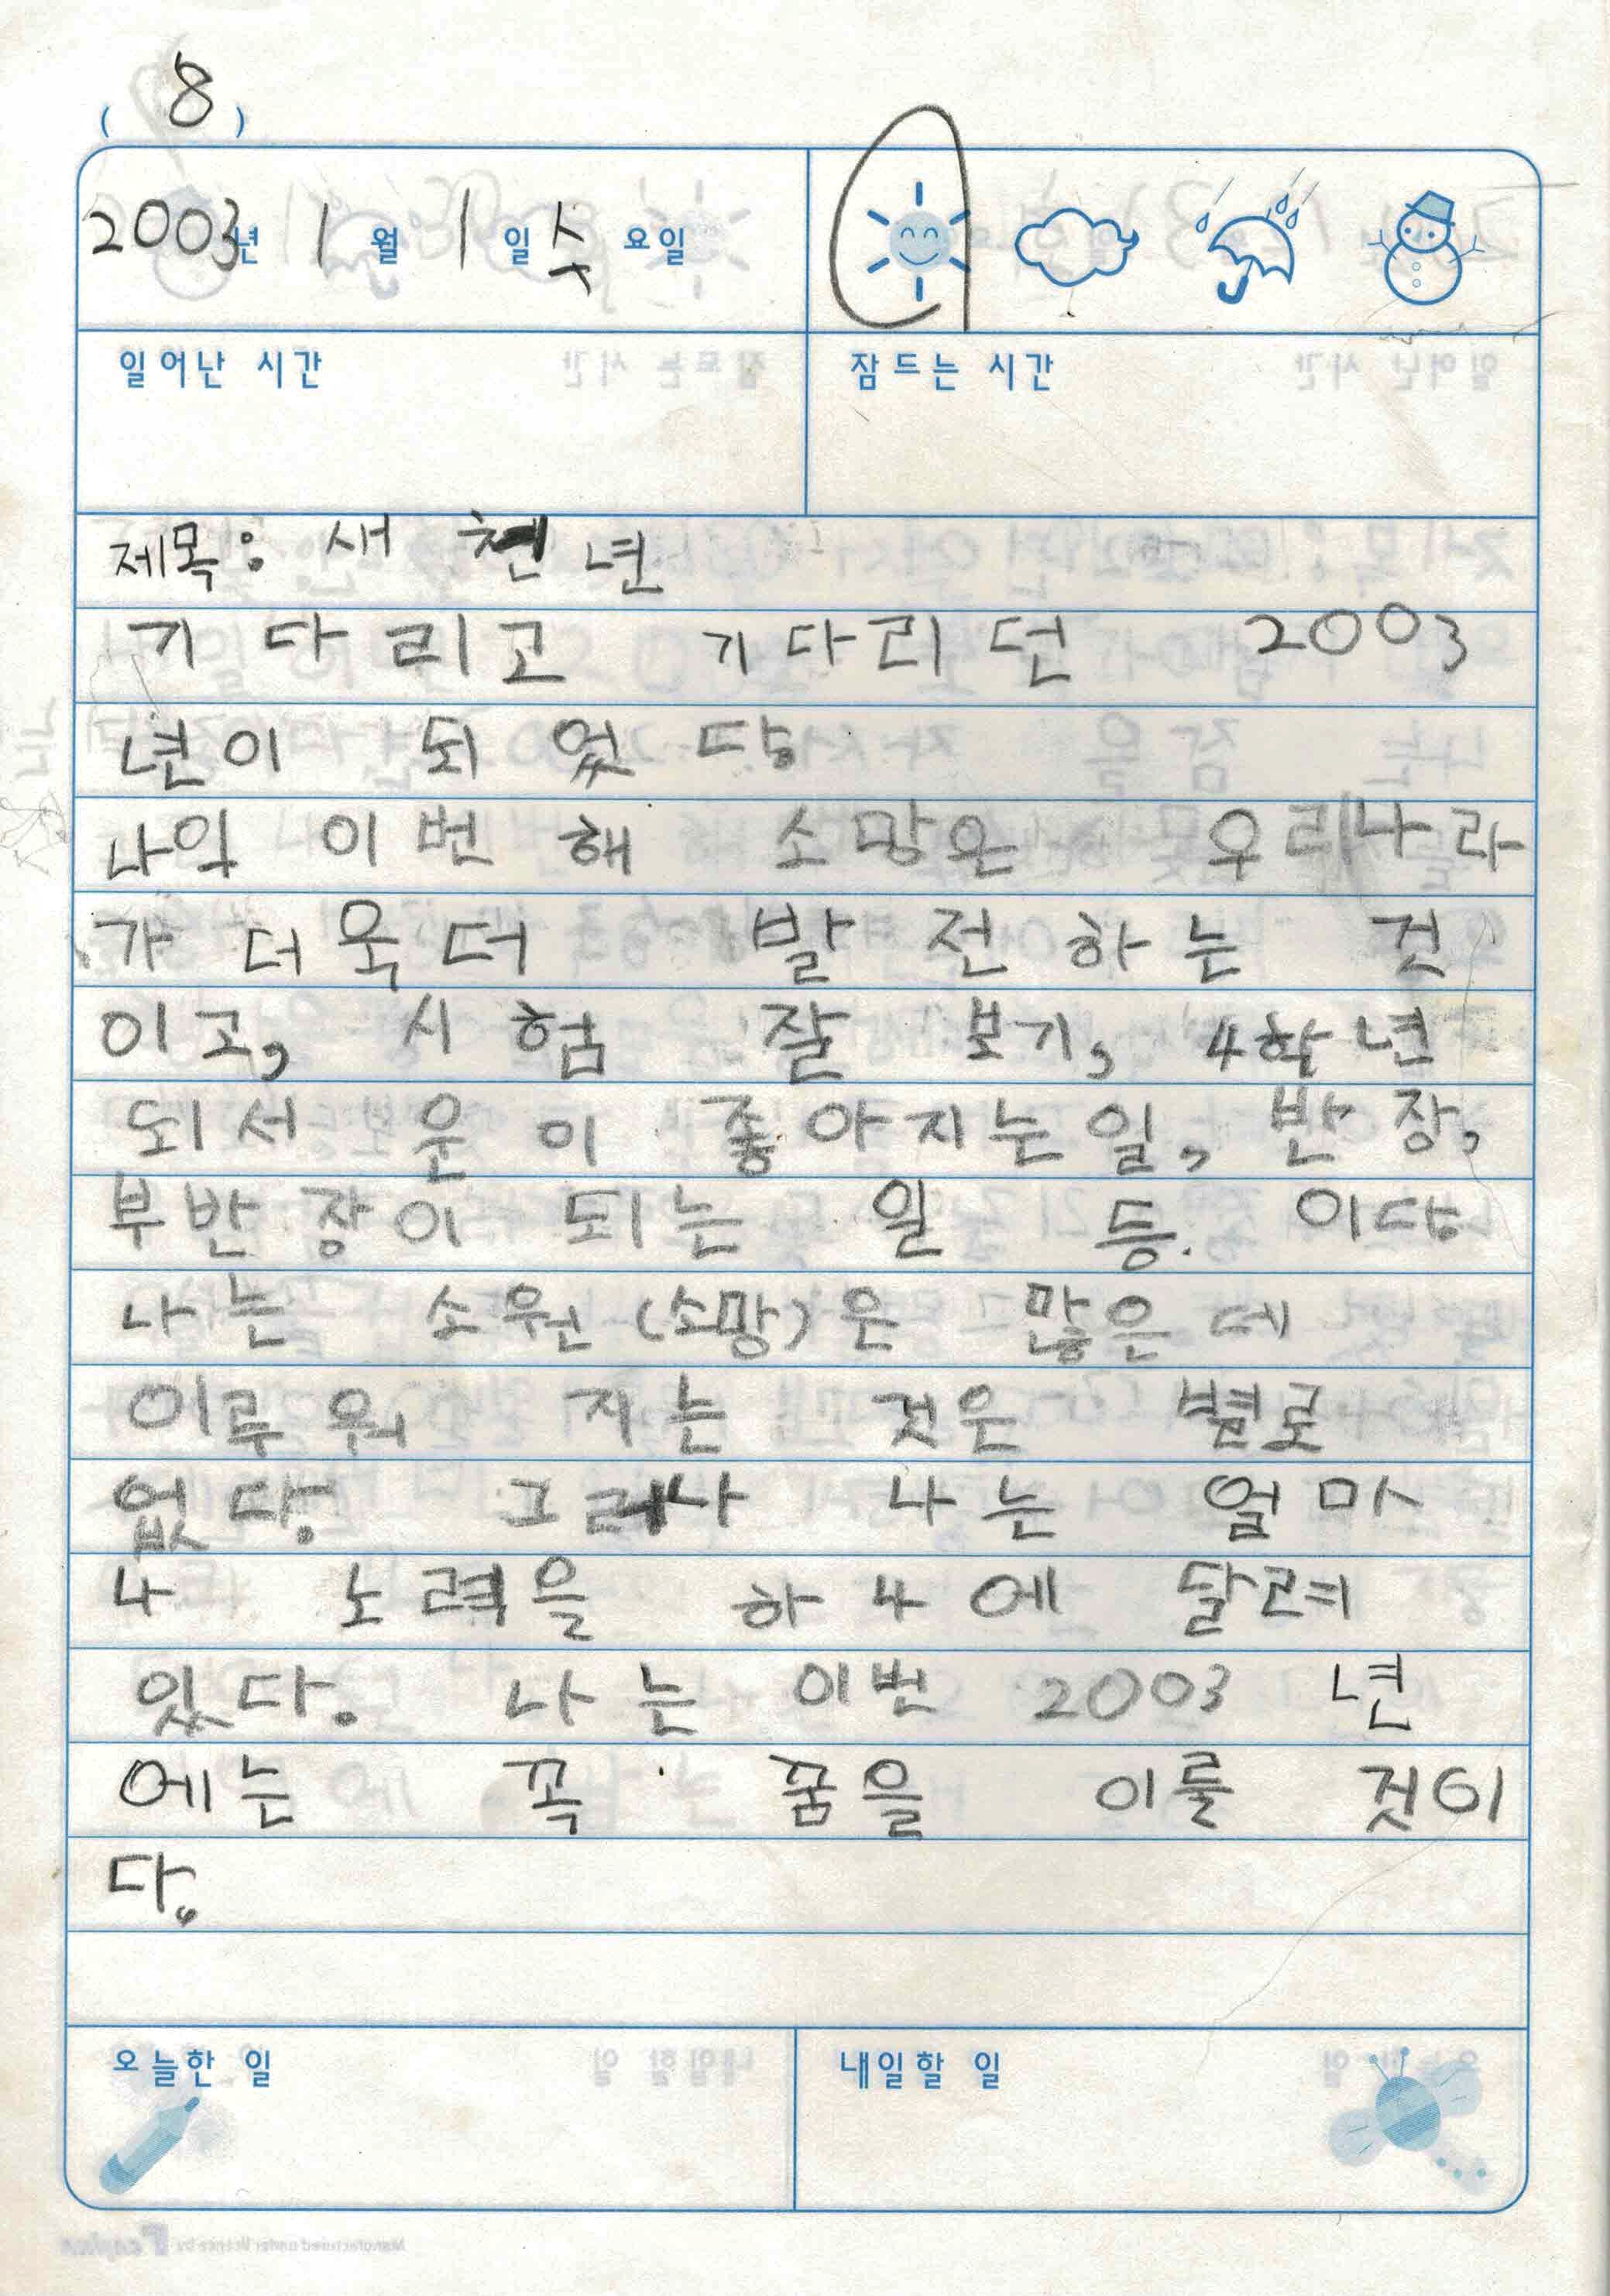 ( 8 )
2003년 1월 1일 수요일
일어난 시간 잠드는 시간
제목: 새 천 년
기다리고 기다리던 2003
년이 되었다.
나의 이번 해 소망은 우리나라
가 더욱더 발전하는 것
이고, 시험 잘 보기, 4학년
되서 운이 좋아지는일, 반장,
부반장이 되는 일 등. 이다.
나는 소원(소망)은 많은데
이루워 지는 것은 별로
없다. 그러나 나는 얼마
나 노력을 하나에 달려
있다. 나는 이번 2003 년
에는 꼭 꿈을 이룰 것이
다.
오늘한 일 내일할 일